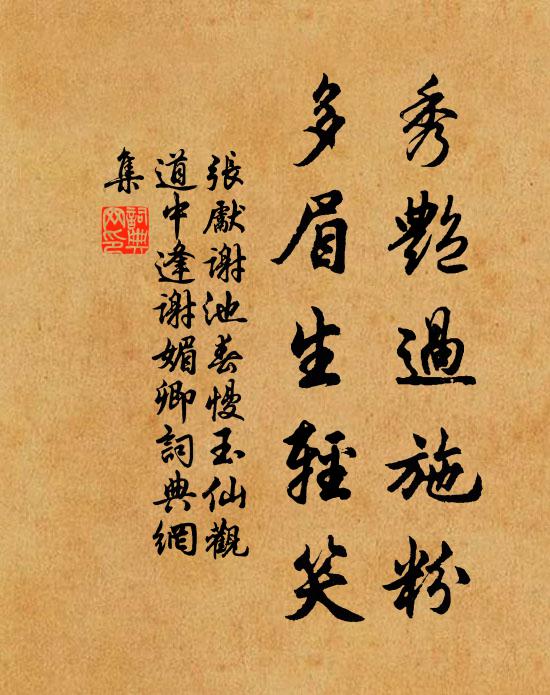 秀艷過施粉
多眉生輕笑
張獻謝池春慢玉仙觀
道中逢謝媚卿詞典網
集
詞典
网印